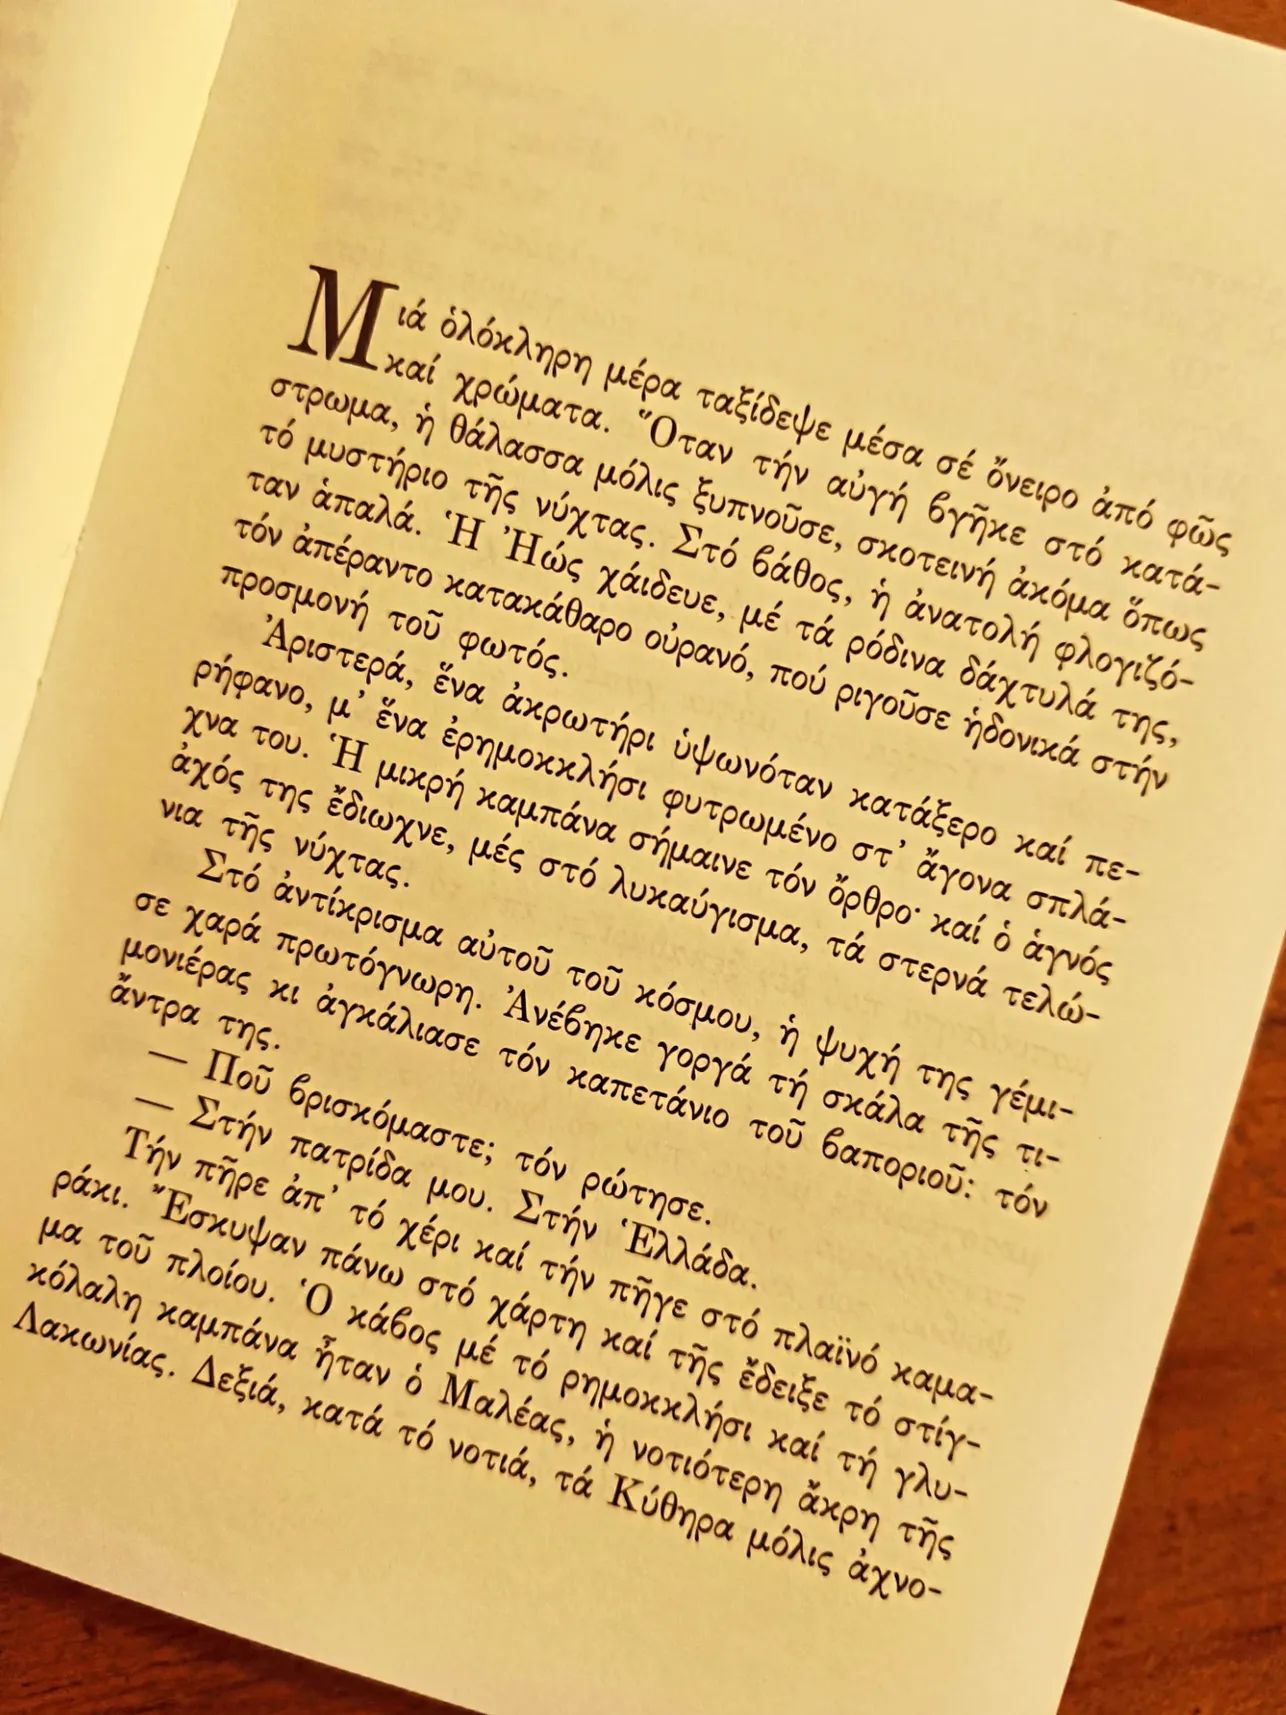 Μιά ὁλόκληρη μέρα ταξίδεψε μέσα σέ ὄνειρο ἀπό φῶς
καί χρώματα. Ὅταν τήν αὐγή βγῆκε στό κατά-
στρωμα, ἡ θάλασσα μόλις ξυπνοῦσε, σκοτεινή ἀκόμα ὅπως
τό μυστήριο τῆς νύχτας. Στό βάθος, ἡ ἀνατολή φλογιζό-
ταν ἁπαλά. Ἡ Ἠώς χάιδευε, μέ τά ρόδινα δάχτυλά της,
τόν ἀπέραντο κατακάθαρο οὐρανό, πού ριγοῦσε ἡδονικά στήν
προσμονή τοῦ φωτός.
Ἀριστερά, ἕνα ἀκρωτήρι ὑψωνόταν κατάξερο καί πε-
ρήφανο, μ’ ἕνα ἐρημοκκλήσι φυτρωμένο στ’ ἄγονα σπλά-
χνα του. Ἡ μικρή καμπάνα σήμαινε τόν ὄρθρο· καί ὁ ἁγνός
ἀχός της ἔδιωχνε, μές στό λυκαύγισμα, τά στερνά τελώ-
νια τῆς νύχτας.
Στό ἀντίκρισμα αὐτοῦ τοῦ κόσμου, ἡ ψυχή της γέμι-
σε χαρά πρωτόγνωρη. Ἀνέβηκε γοργά τή σκάλα τῆς τι-
μονιέρας κι ἀγκάλιασε τόν καπετάνιο τοῦ βαποριοῦ: τόν
ἄντρα της.
— Ποῦ βρισκόμαστε; τόν ρώτησε.
— Στήν πατρίδα μου. Στήν Ἑλλάδα.
Τήν πῆρε ἀπ’ τό χέρι καί τήν πῆγε στό πλαϊνό καμα-
ράκι. Ἔσκυψαν πάνω στό χάρτη καί τῆς ἔδειξε τό στίγ-
μα τοῦ πλοίου. Ὁ κάβος μέ τό ρημοκκλήσι καί τή γλυ-
κόλαλη καμπάνα ἦταν ὁ Μαλέας, ἡ νοτιότερη ἄκρη τῆς
Λακωνίας. Δεξιά, κατά τό νοτιά, τά Κύθηρα μόλις ἀχνο-